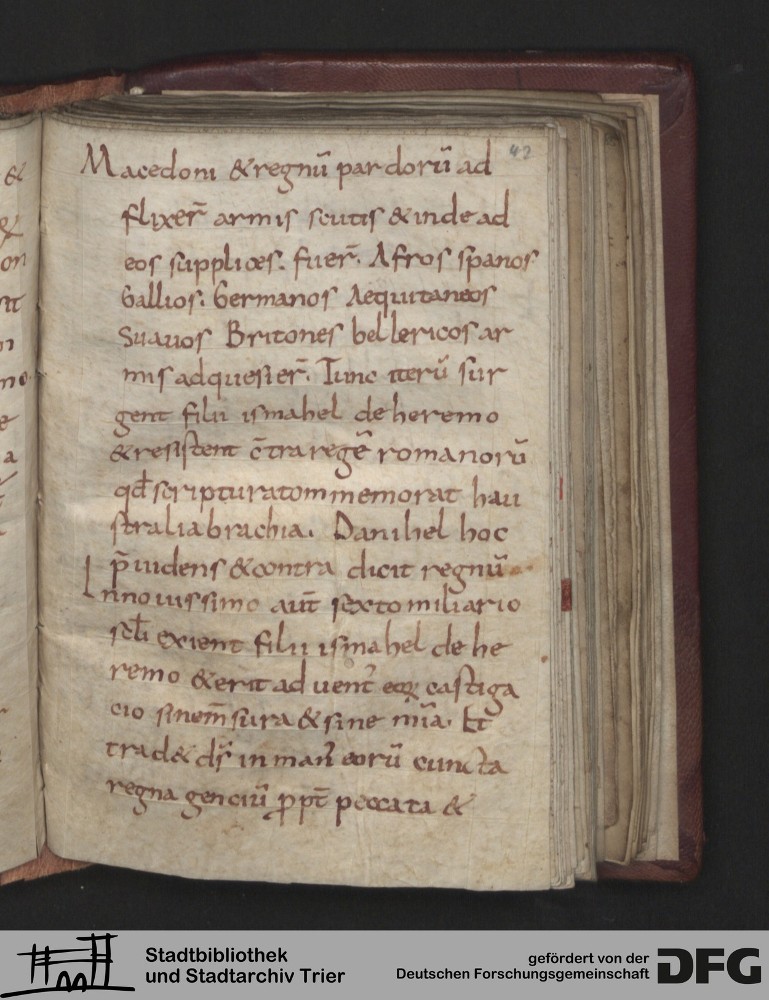 &
&
on
nt
n
no
e
a
42
Macedoni & regnū pardorū ad
flixer̄ armis scutis & inde ad
eos supplices. fuer̄. Afros spanos
Gallios. Germanos Aequitaneos
Suauos Britones bellericos ar
mis adquesier̄. Tunc iterū sur
gent filii ismahel de heremo
& resistent c̄tra regē romanorū
qđ scriptura tommemorat hau
stralia brachia. Danihel hoc
p̄uidens & contra dicit regnū
Innouissimo aut̄ sexto miliario
scłi exient filii ismahel de he
remo & erit aduent̾ eoꝝ castiga
cio sinem̄sura & sine mīa. Et
trad& dś in man̾ eorū cuncta
regna genciū ꝓpt̄ peccata &
Stadtbibliothek
und Stadtarchiv Trier
gefördert von der
Deutschen Forschungsgemeinschaft
DFG